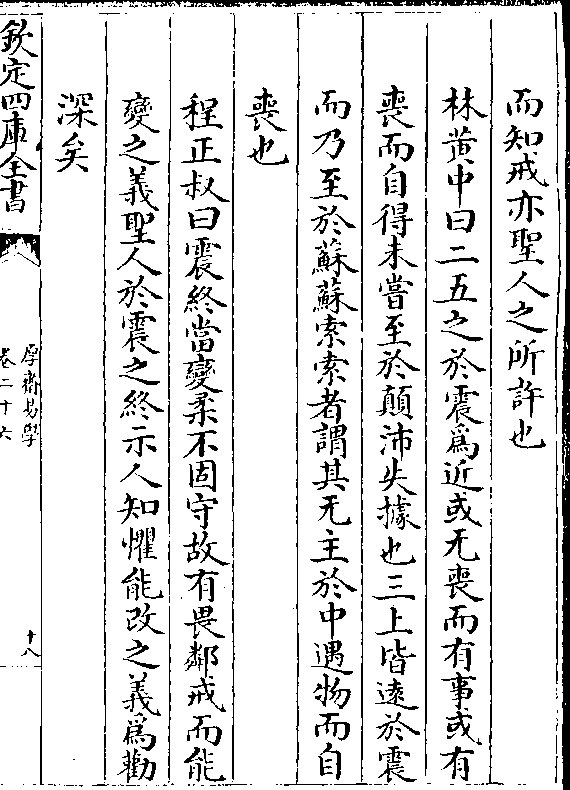 而知戒亦聖人之所許也
林黄中曰二五之於震為近或无喪而有事或有
喪而自得未嘗至於顛沛失據也三上皆逺於震
而乃至於蘇蘇索索者謂其无主於中遇物而自
喪也
程正叔曰震終當變柔不固守故有畏鄰戒而能
變之義聖人於震之終示人知懼能改之義為勸
深矣
欽定四庫全書
厚齋易學
卷二十六
十八